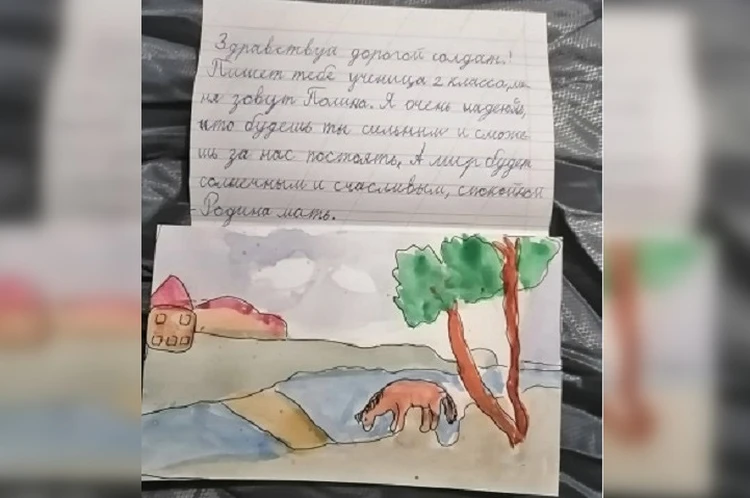 Здравствуа дорогой солдат!
Пишет тебе ученица 2 класса, ме
ня зовут Полина. Я очень надеюсь,
что будешь ты сильным и сможе
шь за нас постоять. А мир будет
солнечным и счасливым, спокойной
Родина мать.